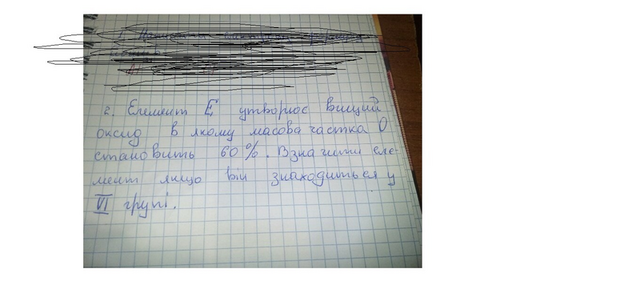 2. Елемент Е утворює вищий
оксид в якому масова частка О
становить 60%. Взначити еле-
мент якщо він знаходиться у
VI групі.